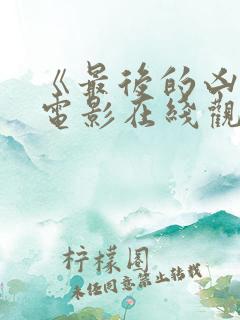 《最後的凶
電影在綫觀
柠檬圈
未经同意禁止转载